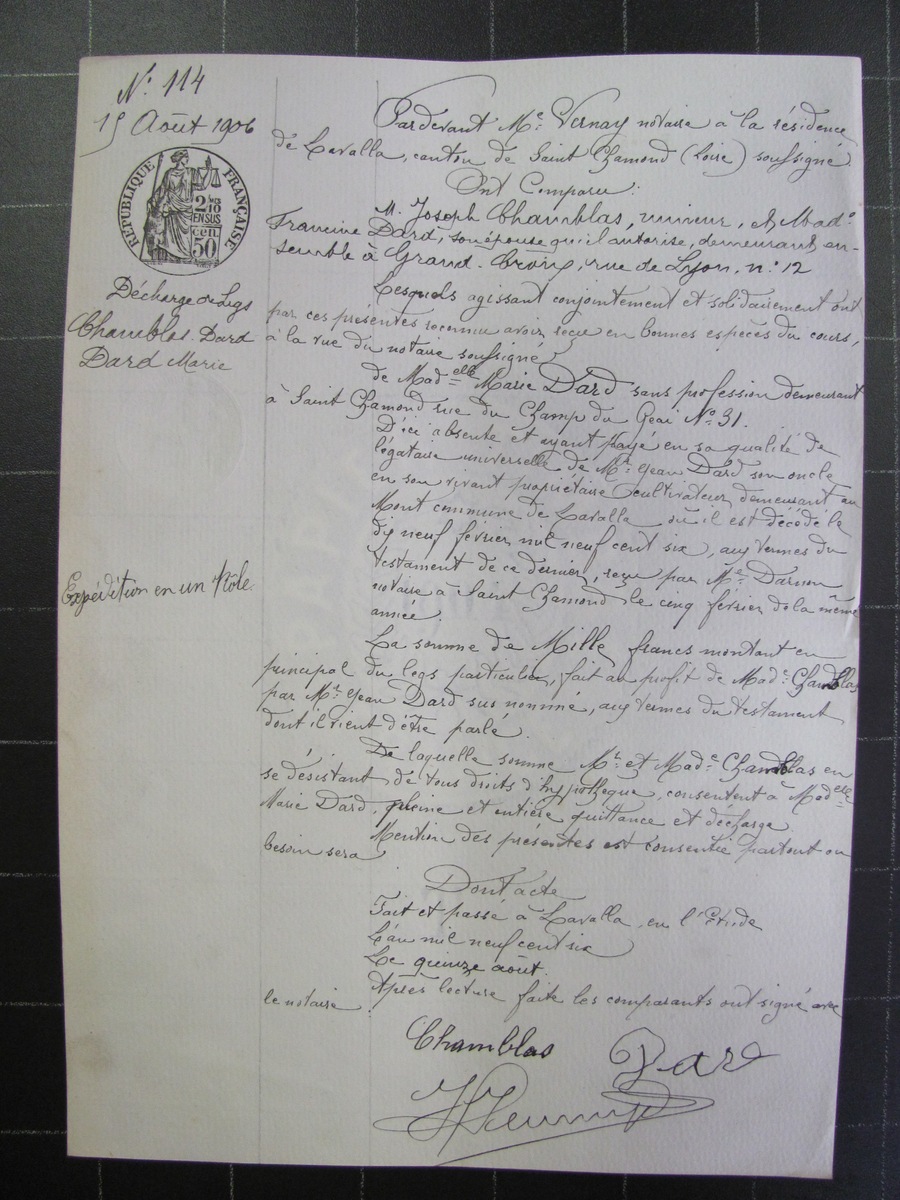 N° 114
15 Août 1906
RÉPUBLIQUE FRANÇAISE
2/10 EN SUS
50 cen.
Décharge de Legs
Chamblas-Dard
Dard Marie
Expédition en un Rôle
Pardevant Me Vernay notaire à la résidence
de Lavalla, canton de Saint Chamond (Loire) soussigné.
Ont Comparu :
M. Joseph Chamblas, mineur, et Made
Francine Dard, son épouse qu'il autorise, demeurant en-
semble à Grand-Croix, rue de Lyon, n° 12
Lesquels agissant conjointement et solidairement ont
par ces présentes reconnu avoir reçu en bonnes espèces du cours,
à la vue du notaire soussigné
de Madelle Marie Dard sans profession demeurant
à Saint Chamond rue du Champ du Geai N° 31.
D'ici absente et ayant payé en sa qualité de
légataire universelle de Mr Jean Dard son oncle
en son vivant propriétaire cultivateur demeurant au
Mont commune de Lavalla où il est décédé le
dix neuf février mil neuf cent six, aux termes du
testament de ce dernier, reçu par Me Darnon
notaire à Saint Chamond le cinq février de la même
année.
La somme de Mille francs montant en
principal du legs particulier, fait au profit de Made Chamblas
par Mr Jean Dard sus nommé, aux termes du testament
dont il vient d'être parlé.
De laquelle somme Mr et Made Chamblas en
se désistant de tous droits d'hypothèque, consentent à Madelle
Marie Dard, pleine et entière quittance et décharge.
Mention des présentes est consentie partout où
besoin sera
Dont acte
Fait et passé à Lavalla, en l'Etude
L'an mil neuf cent six
Le quinze août.
Après lecture faite les comparants ont signé avec
le notaire.
Chamblas
Dard